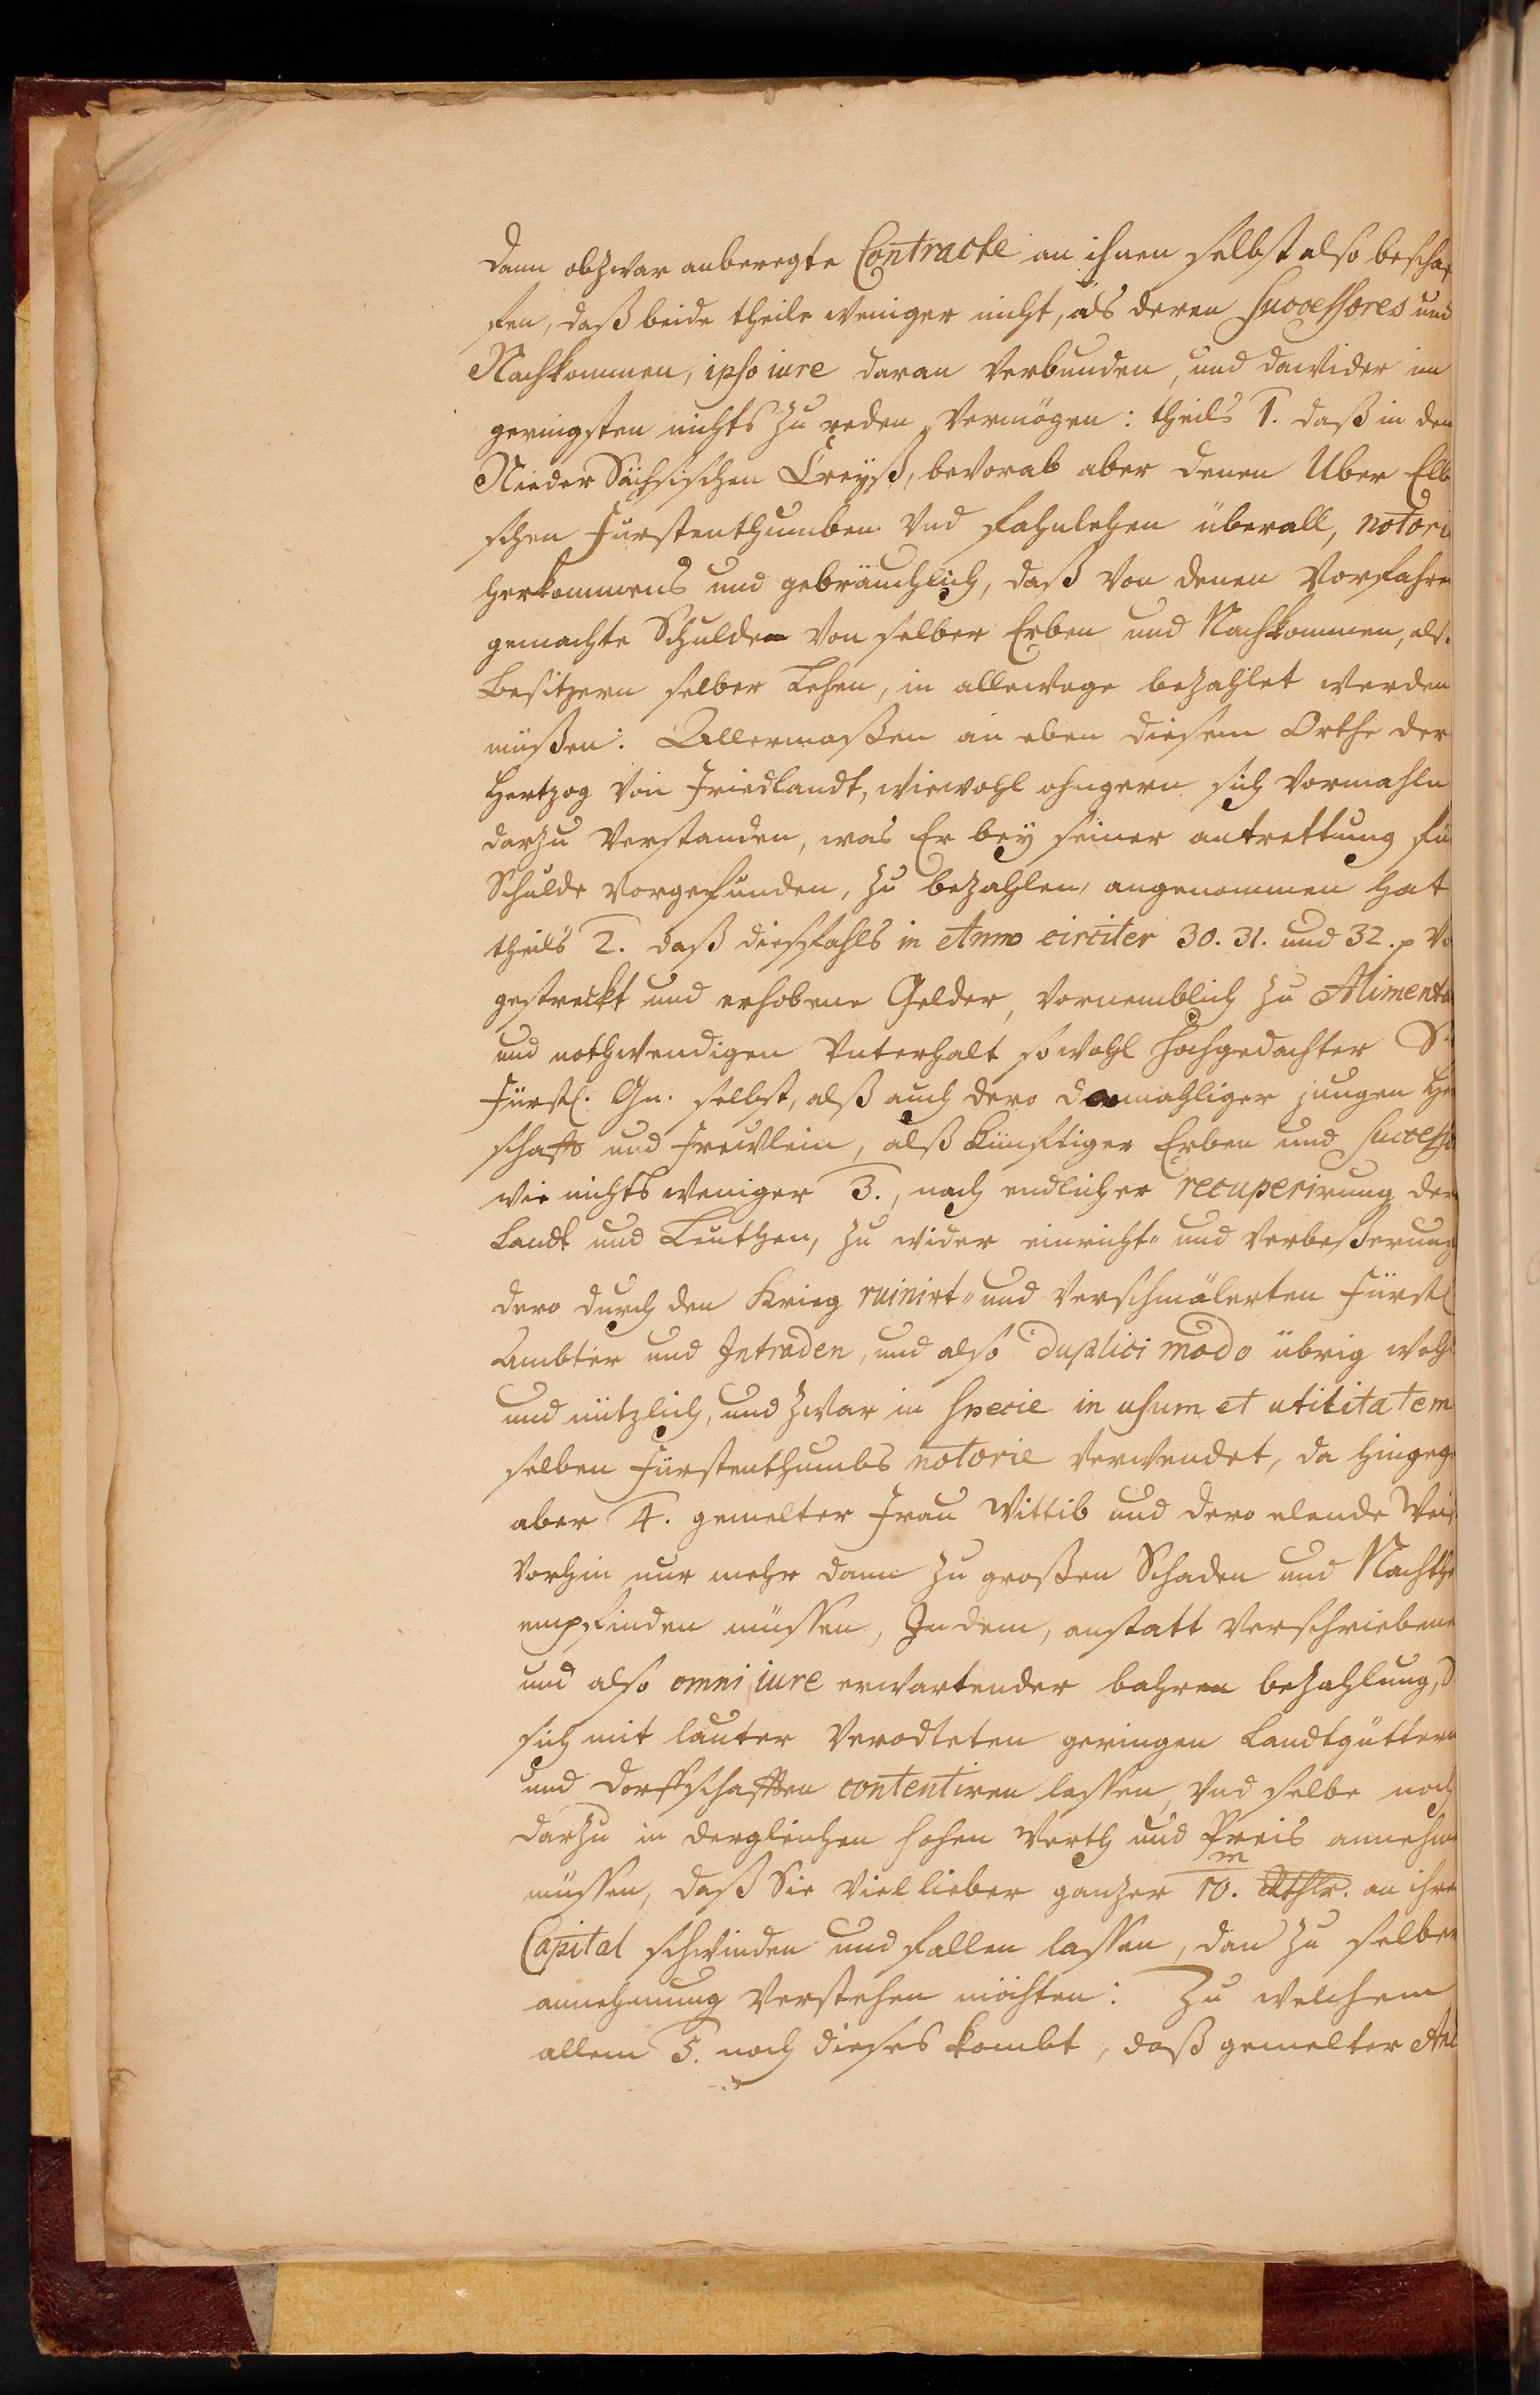 Dann obzwar anberegte Contracte an ihnen selbst also beschaf
fen, daß beide theile weniger nicht, als deren Successores und
Nachkommen, ipso iure daran verbunden, und dawider im
geringsten nichts zu reden vermögen: theils 1. daß in den
Nieder Sächsischen Creyß, bevorab aber denen Uber Elb
schen Fürstenthumben Vnd Fahnlehen überall, notori
herkommens und gebräuchlich, daß von denen Vorfahren
gemachte Schulden von selber Erben und Nachkommen, als
Besitzern selber Lehen, in allewege bezahlet werden
müßen: Allermaßen an eben diesem Orthe der
Hertzog von Friedlandt, wiewohl ohngern sich vormahln
darzu verstanden, was Er bey seiner antrettung für
Schulde vorgefunden, zu bezahlen, angenommen hat
theils 2. daß diesfahls in Anno circiter 30. 31. und 32. p vo
gestreckt und erhobene Gelder, vornemblich zu Alimenta
und nothwendigen Vnterhalt sowohl hochgedachter Sr
Fürstl. Gn. selbst, alß auch dero damahliger jungen Her
schafft und Frewlein, alß künfftiger Erben und Successo
wie nichts weniger 3., nach endlicher recuperirung der
Landt und Leuthen, zu wider einricht- und verbeßerung
dero durch den Krieg ruinirt- und verschmälerten Fürstl
Ambter und Intraden, und also duplici modo übrig wohl
und nützlich, und zwar in specie in usum et utilitatem
selben Fürstenthumbs notorie verwendet, da hingege
aber 4. gemelter Frau Wittib und dero elende Wei
vorhin nur mehr dann zu großen Schaden und Nachthe
empfinden müssen, Indem, anstatt verschriebene
und also omni iure erwartender bahren bezahlung,
sich mit lauter verodteten geringen Landtgüttern
und dorffschafften contentiren lassen, vnd selbe noch
darzu in dergleichen hohen werth und Preis annehm
müssen, daß Sie viel lieber ganzer 10. m Rthlr. an ihre
Capital schwinden und fallen lassen, dan zu selber
annehmung verstehen möchten: Zu welchem
allem 5. noch dieses kombt, daß gemelter